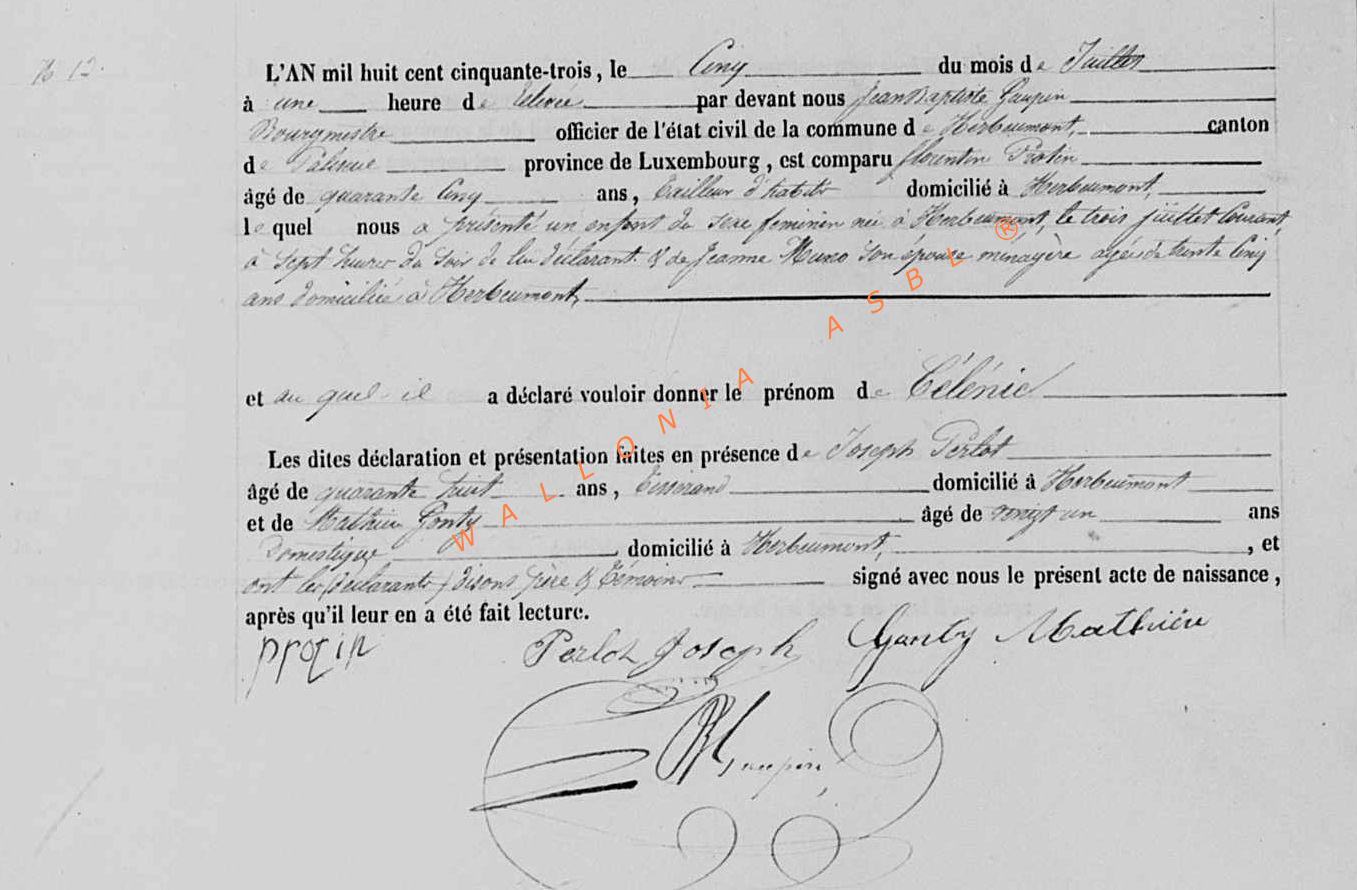 N 12.
L'AN mil huit cent cinquante-trois, le Cinq du mois de Juillet
à une heure de relevée par devant nous Jean Baptiste Gaupin
Bourgmestre officier de l'état civil de la commune de Herbeumont, canton
de Paliseul province de Luxembourg, est comparu florentin Protin
âgé de quarante Cinq ans, tailleur d'habits domicilié à Herbeumont,
lequel nous a présenté un enfant du sexe feminin née à Herbeumont, le trois juillet Courant,
à sept heures du soir de lui déclarant & de Jeanne Muno son épouse ménagère agée de trente Cinq
ans domiciliée à Herbeumont,
et au quel il a déclaré vouloir donner le prénom de Célénie
Les dites déclaration et présentation faites en présence de Joseph Perlot
âgé de quarante huit ans, Tisserand domicilié à Herbeumont
et de Mathieu Gonty âgé de vingt un ans
Domestique domicilié à Herbeumont, , et
ont les déclarants / disons père & témoins signé avec nous le présent acte de naissance,
après qu'il leur en a été fait lecture.
protin Perlot Joseph Gonty Mathieu
Gaupin
WALLONIA ASBL ®